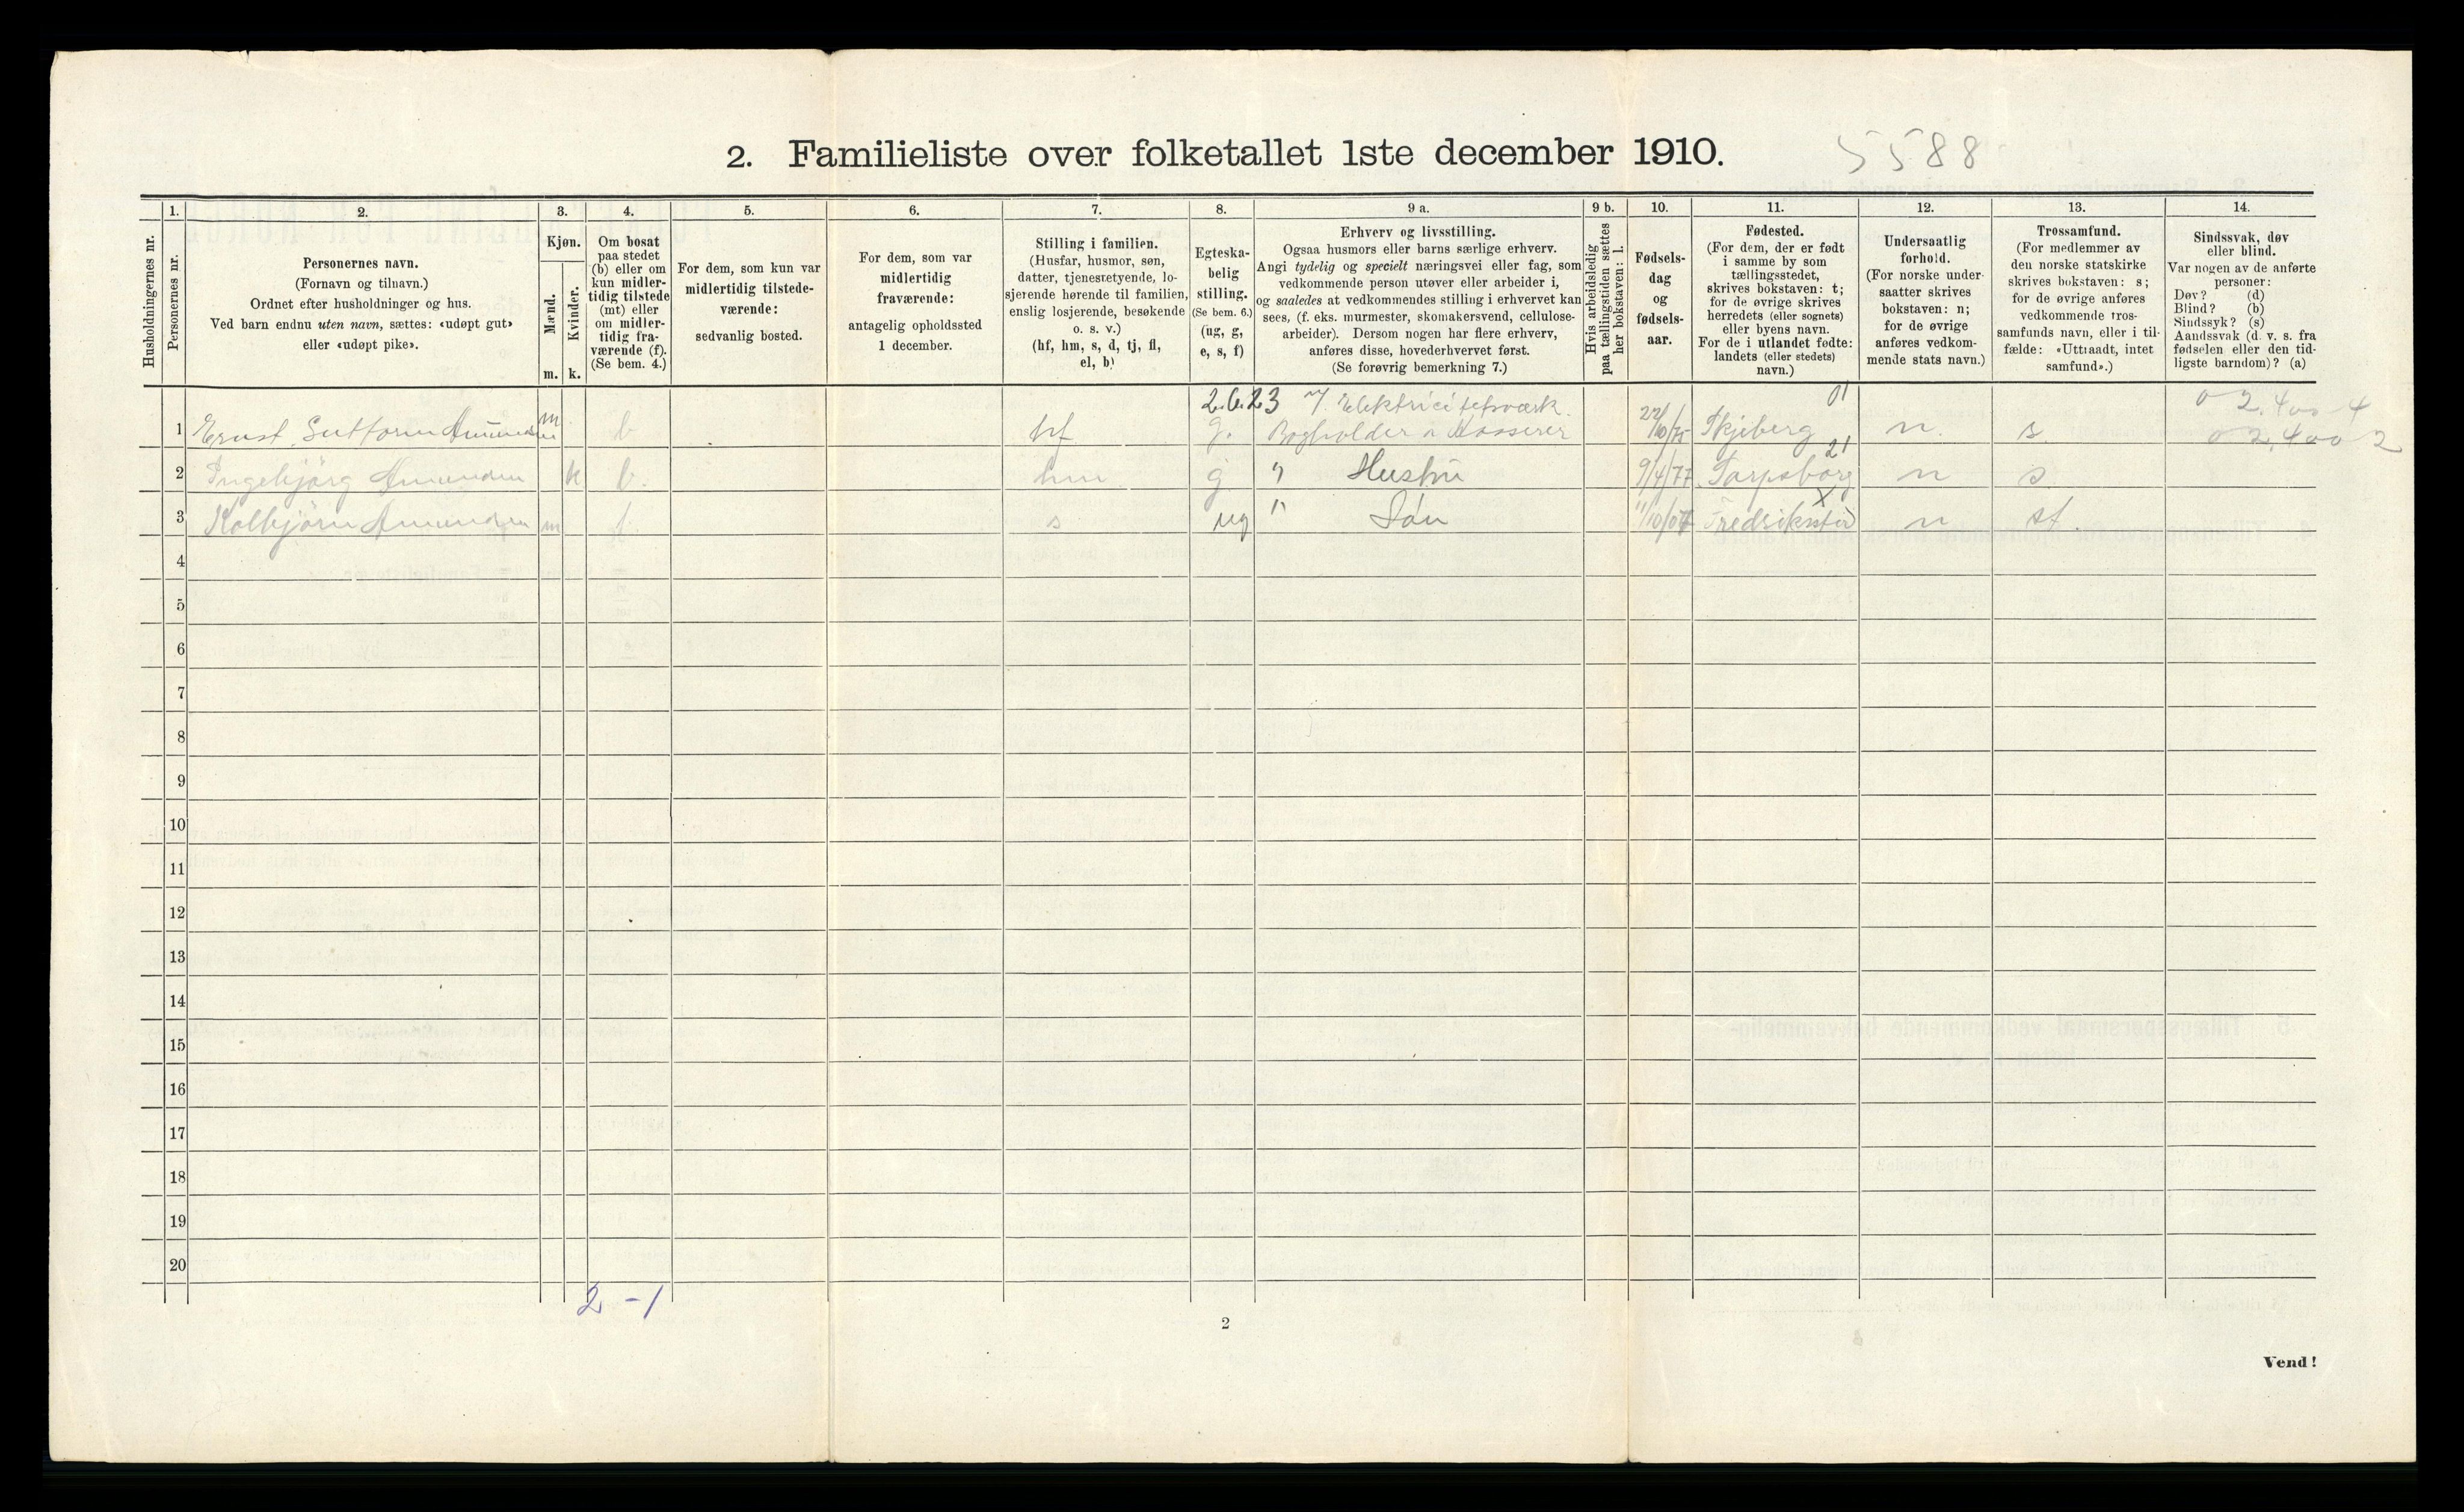 2. Familieliste over folketallet 1ste december 1910.
5588
Husholdningernes nr.
1.
Personernes nr.
2.
Personernes navn.
(Fornavn og tilnavn.)
Ordnet efter husholdninger og hus.
Ved barn endnu uten navn, sættes: «udøpt gut»
eller «udøpt pike».
3.
Kjøn.
Mænd.
Kvinder.
m.
k.
4.
Om bosat
paa stedet
(b) eller om
kun midler-
tidig tilstede
(mt) eller
om midler-
tidig fra-
værende (f).
(Se bem. 4.)
5.
For dem, som kun var
midlertidig tilstede-
værende:
sedvanlig bosted.
6.
For dem, som var
midlertidig
fraværende:
antagelig opholdssted
1 december.
7.
Stilling i familien.
(Husfar, husmor, søn,
datter, tjenestetyende, lo-
sjerende hørende til familien,
enslig losjerende, besøkende
o. s. v.)
(hf, hm, s, d, tj, fl,
el, b)
8.
Egteska-
belig
stilling.
(Se bem. 6.)
(ug, g,
e, s, f)
9 a.
Erhverv og livsstilling.
Ogsaa husmors eller barns særlige erhverv.
Angi tydelig og specielt næringsvei eller fag, som
vedkommende person utøver eller arbeider i,
og saaledes at vedkommendes stilling i erhvervet kan
sees, (f. eks. murmester, skomakersvend, cellulose-
arbeider). Dersom nogen har flere erhverv,
anføres disse, hovederhvervet først.
(Se forøvrig bemerkning 7.)
9 b.
Hvis arbeidsledig
paa tællingstiden sættes
her bokstaven: l.
10.
Fødsels-
dag
og
fødsels-
aar.
11.
Fødested.
(For dem, der er født
i samme by som
tællingsstedet,
skrives bokstaven: t;
for de øvrige skrives
herredets (eller sognets)
eller byens navn.
For de i utlandet fødte:
landets (eller stedets)
navn.)
12.
Undersaatlig
forhold.
(For norske under-
saatter skrives
bokstaven: n;
for de øvrige
anføres vedkom-
mende stats navn.)
13.
Trossamfund.
(For medlemmer av
den norske statskirke
skrives bokstaven: s;
for de øvrige anføres
vedkommende tros-
samfunds navn, eller i til-
fælde: «Uttraadt, intet
samfund».)
14.
Sindssvak, døv
eller blind.
Var nogen av de anførte
personer:
Døv? (d)
Blind? (b)
Sindssyk? (s)
Aandssvak (d. v. s. fra
fødselen eller den tid-
ligste barndom)? (a)
2.6.23 Elektricitetsværk. 01 0 2.400-4
1 Ernst Guttorm Amundsen m b hf g. Bogholder & Kasserer 22/10/75 Skjeberg n. s. 0 2,400 2
21
2 Ingebjörg Amundsen k b. hm g " Hustru 9/4/77 Sarpsborg n s
X
3 Kolbjörn Amundsen m b s ug " Søn 11/10/07 Fredrikstad n st.
4
5
6
7
8
9
10
11
12
13
14
15
16
17
18
19
20
2 - 1
2
Vend!